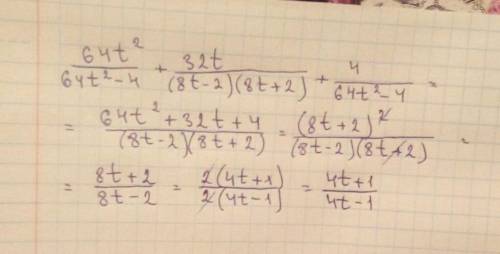 64t²/(64t²-4) + 32t/((8t-2)(8t+2)) + 4/(64t²-4) =
= (64t²+32t+4)/((8t-2)(8t+2)) = (8t+2)²/((8t-2)(8t+2)) =
= (8t+2)/(8t-2) = 2(4t+1)/(2(4t-1)) = (4t+1)/(4t-1)